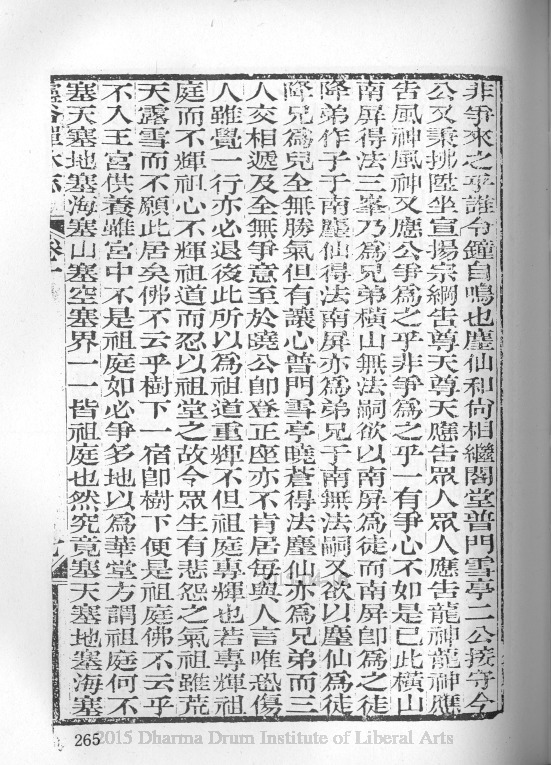 非爭來之乎誰令鐘自鳴也塵仙和尚相繼閣堂普門雪亭二公接守今
公又秉拂陞坐宣揚宗綱告尊天尊天應告眾人眾人應告龍神龍神應
告風神風神又應公爭為之乎非爭為之乎一有爭心不如是已此橫山
南屏得法三峯乃為兄弟橫山無法嗣欲以南屏為徒而南屏卽為之徒
降弟作子于南塵仙得法南屏亦為弟兄于南無法嗣又欲以塵仙為徒
降兄為兒全無勝氣但有讓心普門雪亭曉蒼得法塵仙亦為兄弟而三
人交相遞及全無爭意至於曉公卽登正座亦不肯居每與人言唯恐傷
人雖覺一行亦必退後此所以為祖道重輝不但祖庭專輝也若專輝祖
庭而不輝祖心不輝祖道而忍以祖堂之故令眾生有悲怨之氣祖雖荒
天露雪而不願此居矣佛不云乎樹下一宿卽樹下便是祖庭佛不云乎
不入王宮供養雖宮中不是祖庭如必爭多地以為華堂方謂祖庭何不
塞天塞地塞海塞山塞空塞界一一皆祖庭也然究竟塞天塞地塞海塞
靈谷禪林志 卷十 九
265
2015 Dharma Drum Institute of Liberal Arts